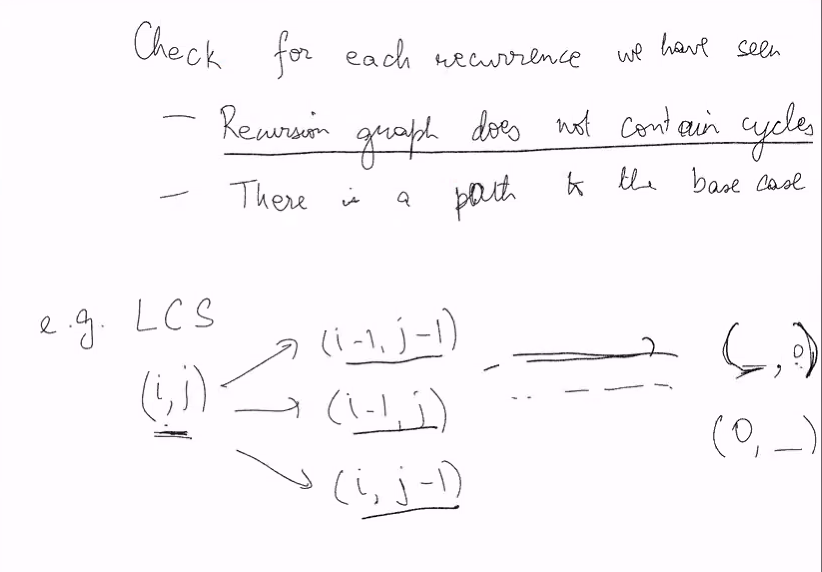 Check for each recurrence we have seen
— Recursion graph does not contain cycles
— There is a path to the base case
e.g. LCS
(i, j)
(i-1, j-1)
(i-1, j)
(i, j-1)
(_, 0)
(0, _)